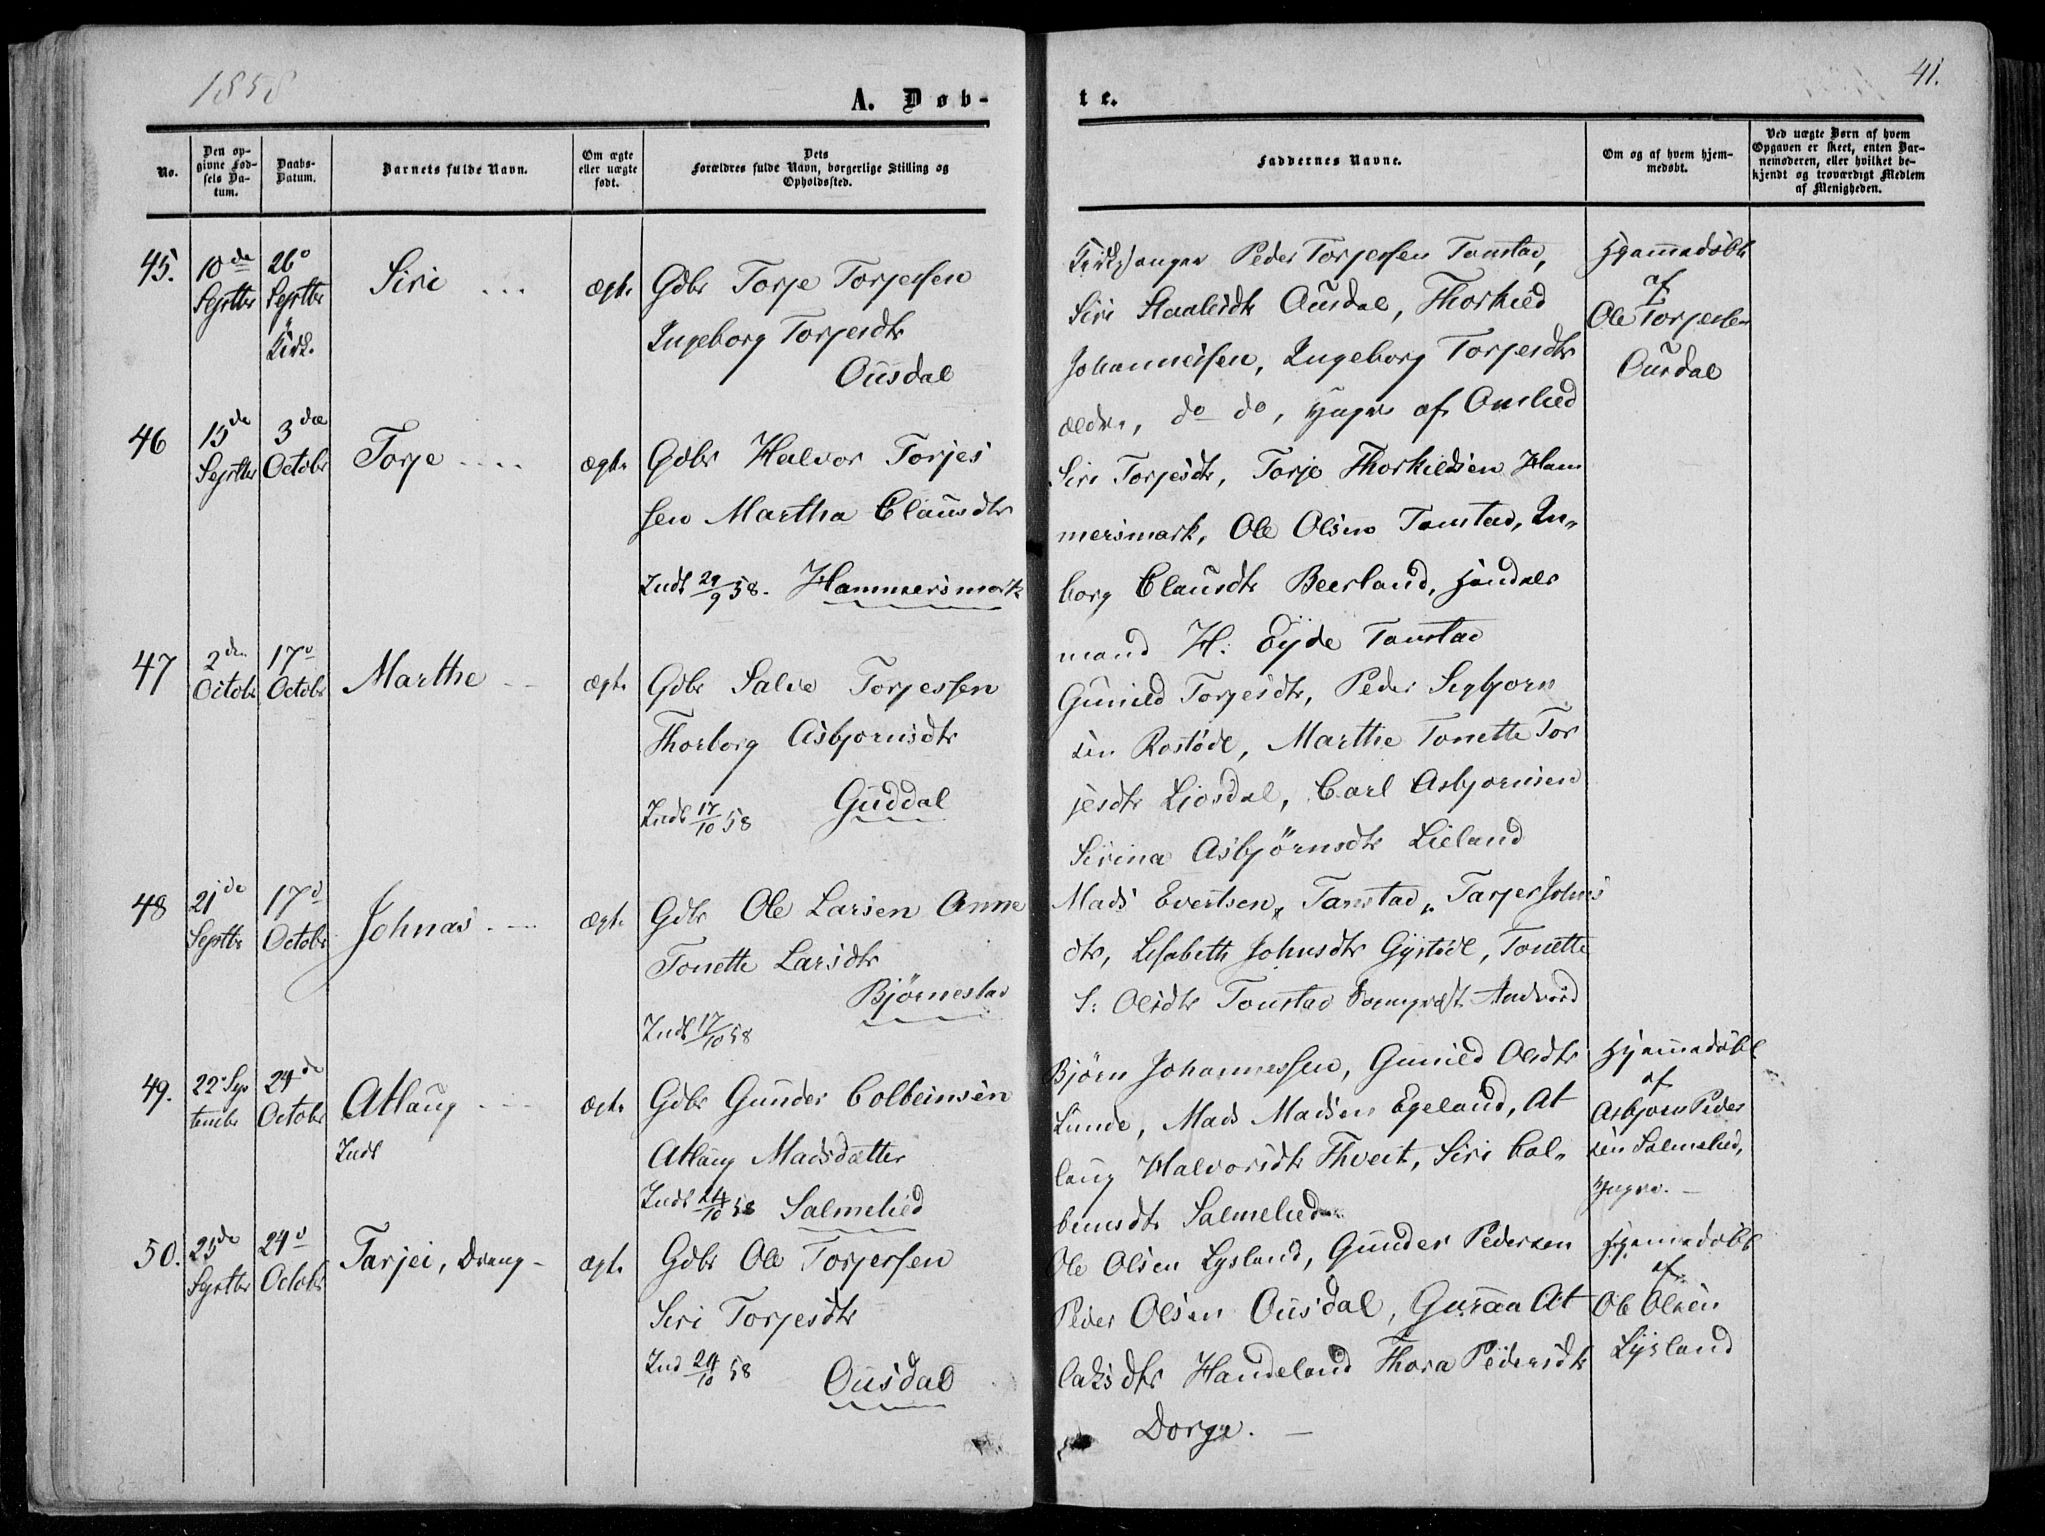 1858
A. Døb-
te.
41.
No.
Den op-
givne Fød-
sels Da-
tum.
Daabs-
Datum.
Barnets fulde Navn.
Om ægte
eller uægte
født.
Dets
Forældres fulde Navn, borgerlige Stilling og
Opholdssted.
Faddernes Navne.
Om og af hvem hjem-
medøbt.
Ved uægte Børn af hvem
Opgaven er skeet, enten Bar-
nemoderen, eller hvilket be-
kjendt og troværdigt Medlem
af Menigheden.
45.
10de
Septbr
26
Septbr
Kirk.
Siri
ægte
Gdbr Torje Torjessen
Ingeborg Torjesdtr
Ousdal
Kirkesanger Peder Torjessen Tonstad,
Siri Staalesdtr Ousdal, Thorkild
Johannessen, Ingeborg Torjesdtr
ældre, do do, yngre af Omlid
Hjemmedøbt
af
Ole Torjessen
Ousdal
46
15de
Septbr
3die
Octobr
Torje
ægte
Gdbr Halvor Torjes
sen Martha Clausdtr
Indt 29/9 58. Hammersmark
Siri Torjesdtr, Torje Thorkildsen Ham
mersmark, Ole Olsen Tonstad, In-
borg Clausdtr Beerland, Handels
mand H. Eyde Tonstad
47
2den
Octobr
17
Octobr
Marthe
ægte
Gdbr Salve Torjessen
Thorborg Asbjornsdtr
Indt 17/10 58 Guddal
Gunild Torjesdtr, Peder Sigbjorn
sen Rostøl, Marthe Tonette Tor
jesdtr Ljosdal, Carl Asbjornsen
Sirina Asbjørnsdtr Lieland
48
21de
Septbr
17
Octobr
Johnas
ægte
Gdbr Ole Larsen Anne
Tonette Larsdtr
Bjørnestad
Indt 17/10 58
Mads Evertsen, Tonstad, Tarjer Johns
dtr, Lisabeth Johnsdtr Gystøl, Tonette
S: Olsdtr Tonstad
49.
22 Sep
tembr
24de
Octobr
Atlaug
Indt
ægte
Gdbr Gunder Colbeinsen
Atlaug Madsdatter
Indt 24/10 58 Salmelid
Bjørn Johannessen, Gunild Olsdtr
Lunde, Mads Madsen Egeland, At
laug Halvorsdtr Thveit, Siri Col-
beinsdtr Salmelid
Hjemmedøbt
af
Asbjorn Peder
sen Salmelid,
yngre.
50.
25de
Septbr
24
Octobr
Tarjei, Dreng
ægte
Gdbr Ole Torjersen
Siri Torjesdtr
Ind 24/10 58
Ousdal
Ole Olsen Lysland, Gunder Pedersen
Peder Olsen Ousdal, Guraan At
laksdtr Handeland Thora Pedersdtr
Dorge.
Hjemmedøbt
af
Ole Olsen
Lysland